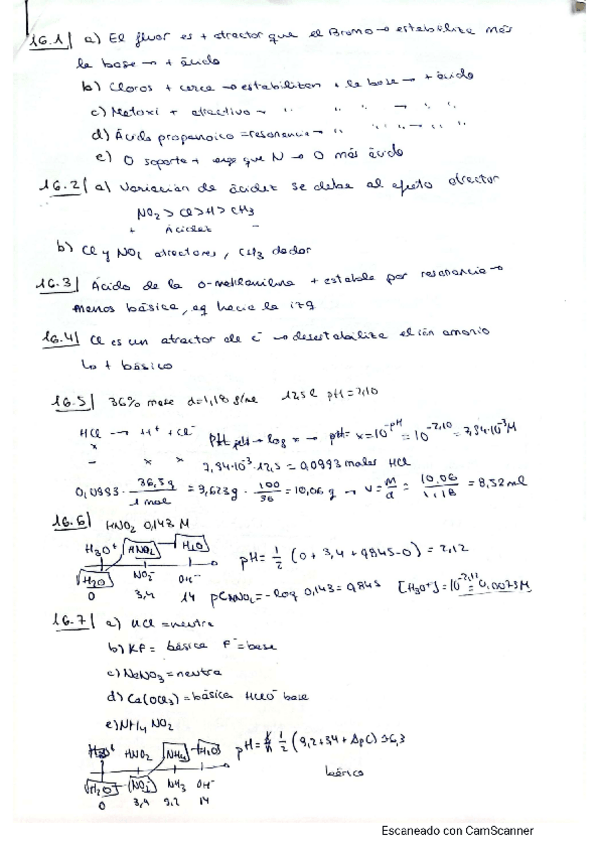 16.1 a) El fluor es + atractor que el Bromo → estabiliza más
la base → + ácido
b) Cloros + cerca → estabilizan + la base → + ácido
c) Metoxi + atractivo → " " " → " "
d) Ácido propanoico = resonancia → " " " → " "
e) O soporta + carga que N → O más ácido
16.2 a) Variación de ácidez se debe al efecto atractor
NO2 > Cl > H > CH3
+ Ácidez -
b) Cl y NO2 atractores, CH3 dador
16.3 Ácido de la o-metilanilina + estable por resonancia →
menos básica, eq hacia la izq
16.4 Cl es un atractor de e- → desestabiliza el ión amonio
↳ + básico
16.5 36% masa d=1,18 g/ml 12,5 l pH=2,10
HCl → H+ + Cl- pH → log x → pH= x=10^-pH = 10^-2,10 = 7,94·10^-3 M
x
- x x 7,94·10^-3 · 12,5 = 0,0993 moles HCl
0,0993 · 36,5g/1 mol = 3,623g · 100/36 = 10,06 g → V = m/d = 10,06/1,18 = 8,52 ml
16.6 HNO2 0,143 M
H3O+ HNO2 H2O pH = 1/2 (0 + 3,4 + 0,845 - 0) = 2,12
H2O NO2- OH-
0 3,4 14 pCHNO2 = -log 0,143 = 0,845 [H3O+] = 10^-2,12 = 0,0075 M
16.7 a) = neutra
b) KF = básica F- = base
c) NaNO3 = neutra
d) = básica base
e) NH4 NO2
H3O+ HNO2 NH4 H2O pH = 1/2 (9,2 + 3,4 + ΔpC) = 6,3
H2O NO2- NH3 OH-
0 3,4 9,2 14
Escaneado con CamScanner